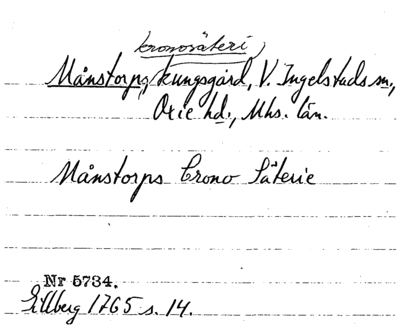 kronosäteri,
Månstorps kungsgård, V. Ingelstads sn.,
Oxie hd., Mhs. län.
Månstorps Crono Säterie
Nr 5734.
Gillberg 1765 s. 14.